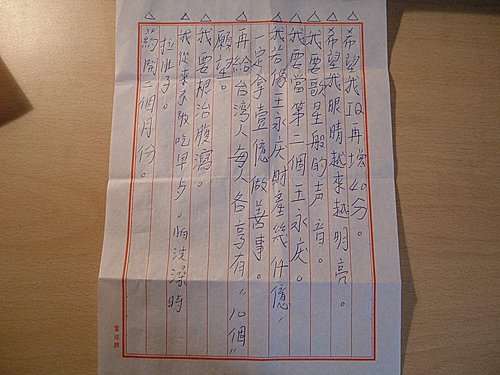 希望我IQ再增40分。
希望我眼睛越來越明亮。
我要歌星般的声音。
我要當第二個王永庆。
我若像王永庆財產幾仟億，
一定拿壹億做善事。
再給台灣人每人各享有，"10個"
願望。
我要根治腹瀉。
我從來不敢吃早点。怕洗澡時
拉肚子。
药開二個月份。